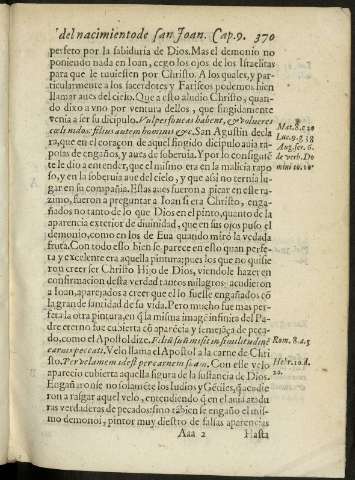 del nacimiento de san Joan. Cap. 9. 370
perfeto por la sabiduria de Dios. Mas el demonio no
poniendo nada en Ioan, cego los ojos de los Israelitas
para que le tuuiessen por Christo. A los quales, y par-
ticularmente a los sacerdotes y Fariseos podemos bien
llamar aues del cielo. Que a esto aludio Christo, quan-
do dixo a vno por ventura dellos, que fingidamente
venia a ser su dicipulo. Vulpes foueas habent, & volucres
cæli nidos: filius autem hominis &c. San Agustin decla
ra, que en el coraçon de aquel fingido dicipulo auia ra-
posas de engaños, y aues de soberuia. Y por lo consiguiẽ
te le dio a entender, que el mismo era en la malicia rapo
so, y en la soberuia aue del cielo, y que assi no ternia lu-
gar en su compañia. Estas aues fueron a picar en este ra-
zimo, fueron a preguntar a Ioan si era Christo, enga-
ñados no tanto de lo que Dios en el pinto, quanto de la
aparencia exterior de diuinidad, que en sus ojos puso el
demonio, como en los de Eua quando mirò la vedada
fruta. Con todo esso bien se parece en esto quan perfe-
ta y excelente era aquella pintura; pues los que no quisie
ron creer ser Christo Hijo de Dios, viendole hazer en
confirmacion desta verdad tantos milagros: acudieron
a Ioan, aparejados a creer que el lo fuesse engañados cõ
la gran de santidad de su vida. Pero mucho fue mas per-
feta la otra pintura, en q̃ la misma imagẽ infinita del Pa-
dre eterno fue cubierta cõ aparẽcia y semejãça de peca-
do, como el Apostol dize. Filiũ suũ misit in similitudinẽ
carnis peccati. Velo llama el Apostol a la carne de Chri
sto. Per velamem id est per carnem suam. Con este velo
aparecio cubierta aquella figura de la sustancia de Dios.
Engañaronse no solamẽte los Iudios y Gẽtiles, q̃ acudie
ron a rasgar aquel velo, entendiendo q̃ en el auia atadu
ras verdaderas de pecados: sino tãbien se engaño el mis-
mo demonio, pintor muy diestro de falsas aparencias
Aaa 2 Hasta
Mat. 8. c 20
Luc. 9. g 58
Aug. ser. 6.
de verb. Do
mini
Rom. 8. a. 3
Hebr. 10. d.
20.